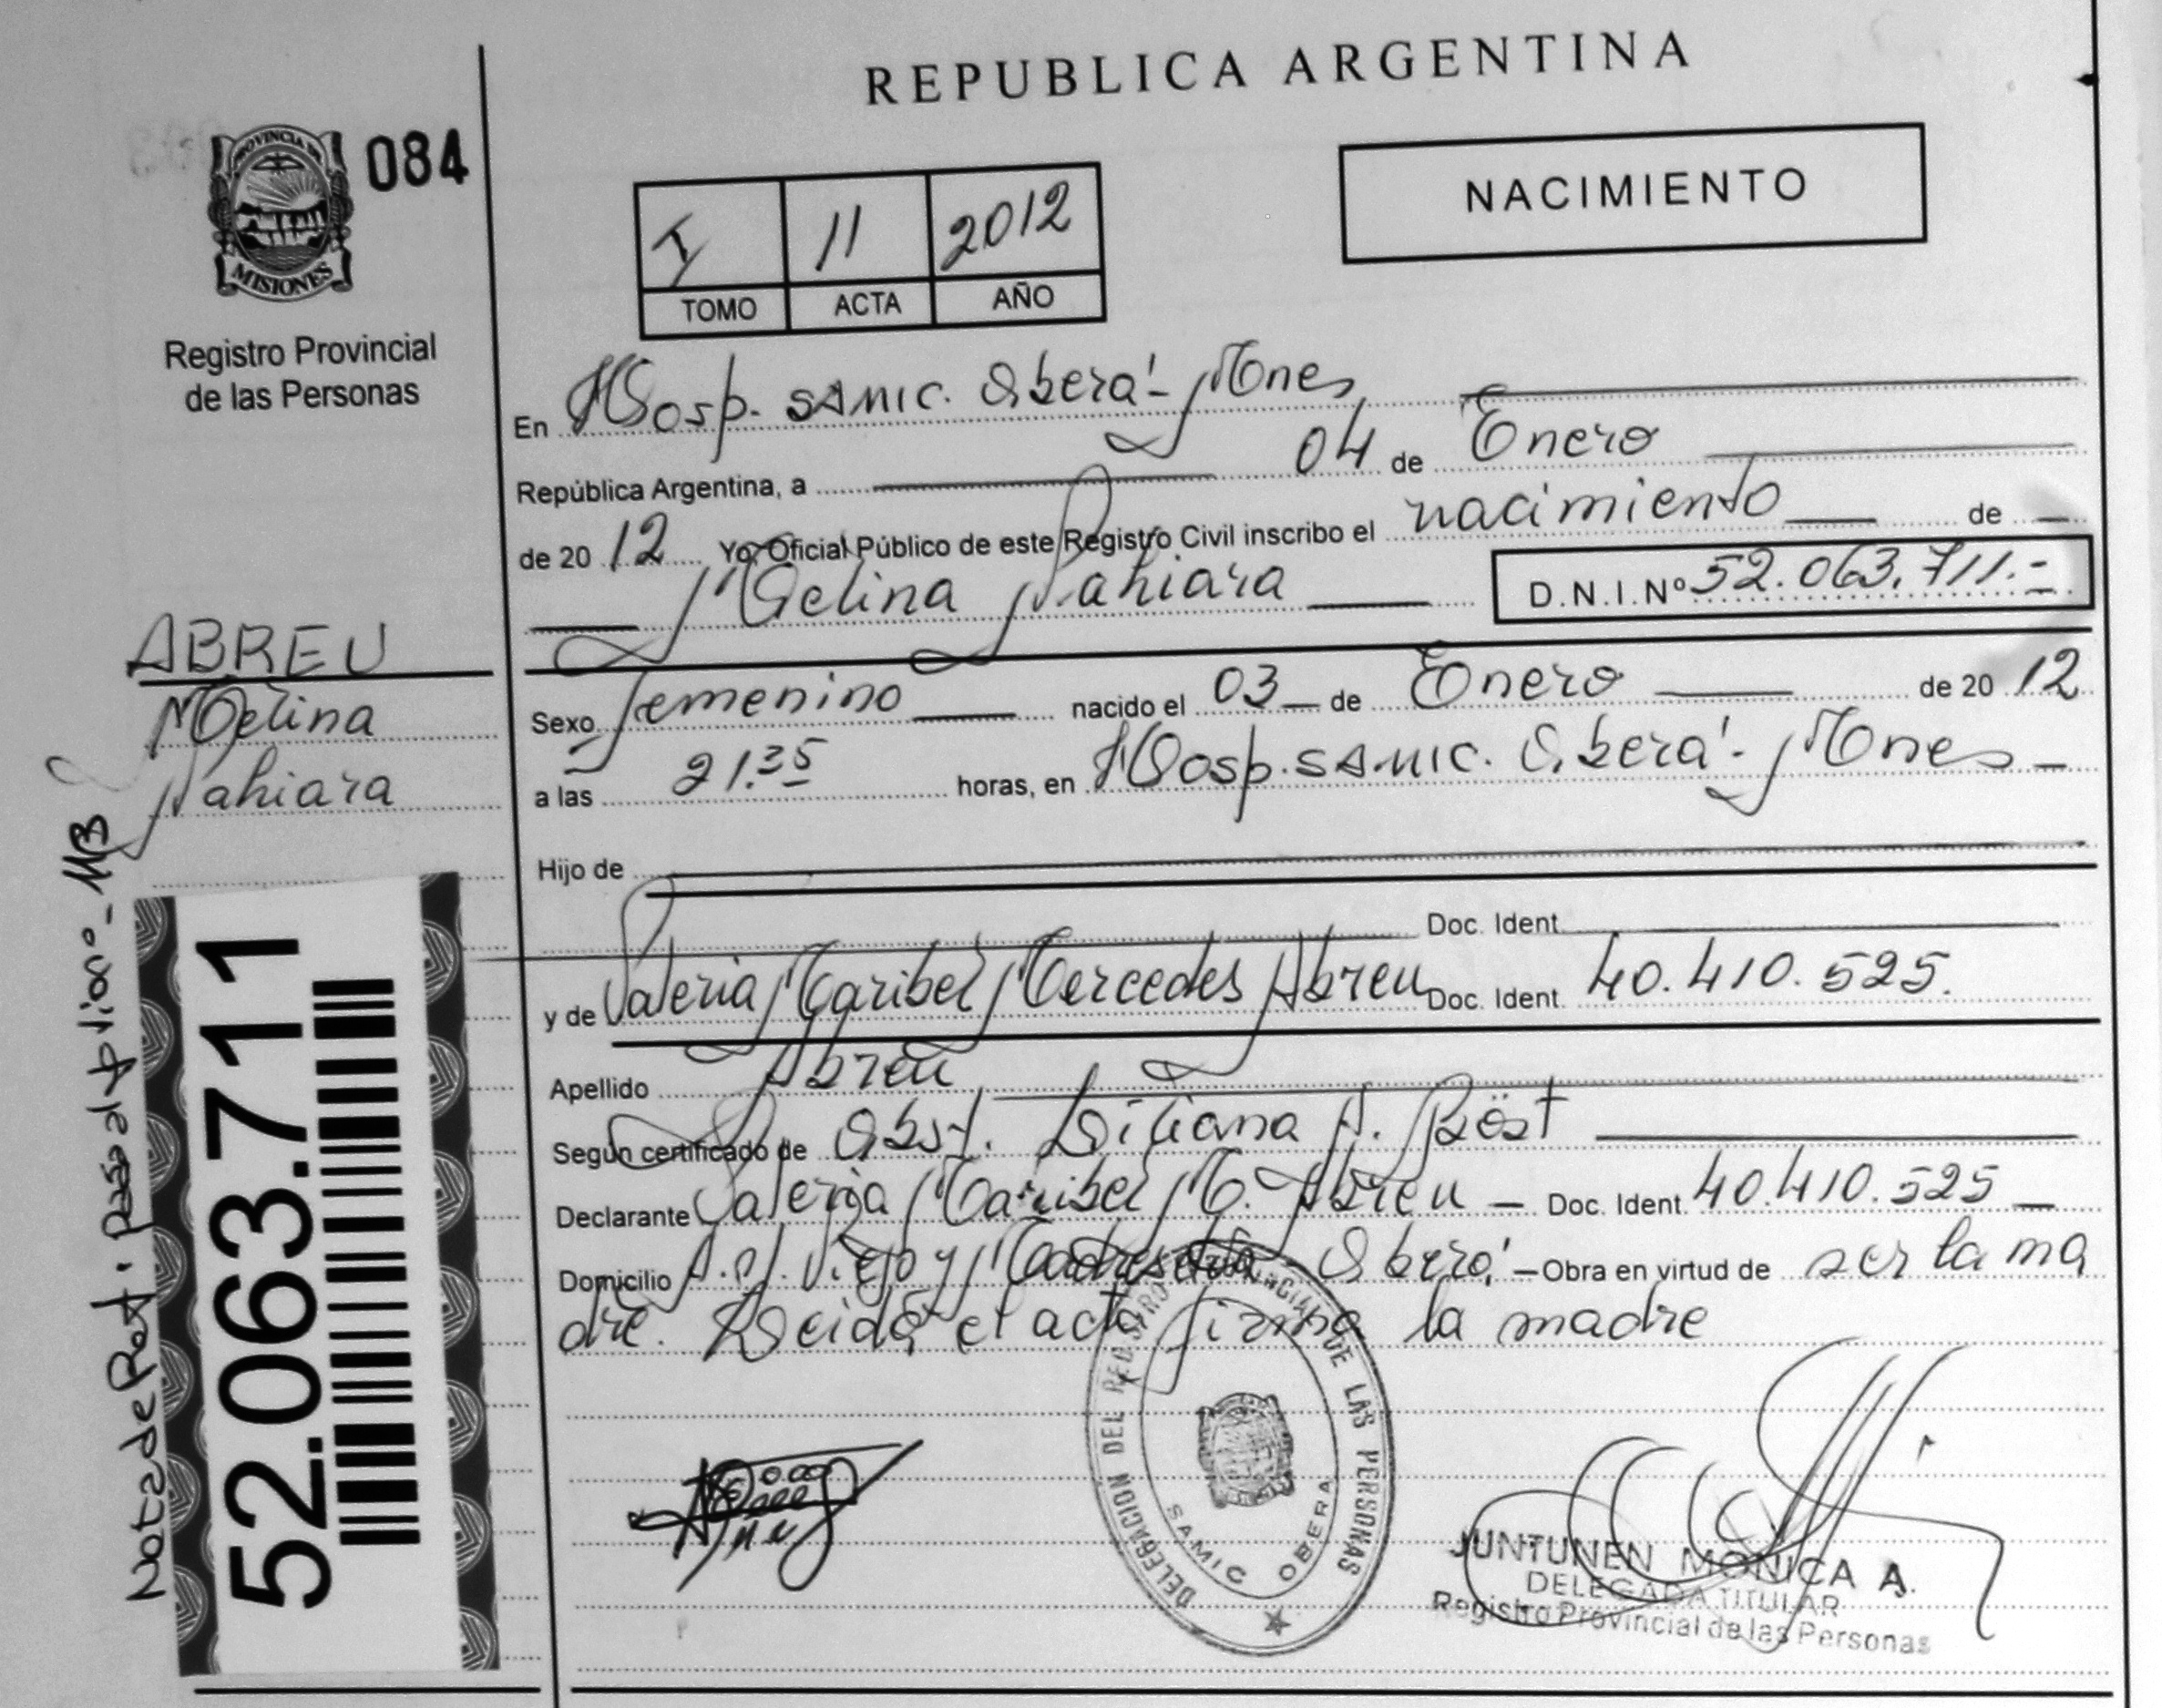 REPUBLICA ARGENTINA
PROVINCIA DE
MISIONES
084
Registro Provincial
de las Personas
NACIMIENTO
I 11 2012
TOMO ACTA AÑO
En Hosp. SAMIC. Oberá - Mnes
República Argentina, a 04 de Enero
de 20 12 Yo, Oficial Público de este Registro Civil inscribo el nacimiento de
Melina Nahiara D.N.I.Nº 52.063.711.-
ABREU
Melina
Nahiara
Sexo femenino nacido el 03 de Enero de 20 12
a las 21.35 horas, en Hosp. SAMIC. Oberá - Mnes
Hijo de
Doc. Ident.
y de Valeria Maribel Mercedes Abreu Doc. Ident. 40.410.525.
Apellido Abreu
Según certificado de Obst. Liliana A. Böst
Declarante Valeria Maribel M. Abreu - Doc. Ident. 40.410.525
Domicilio Oberá - Obra en virtud de ser la ma
dre. Leida el acta firma la madre
Nota de Ref.: pasa al
52.063.711
DELEGACION DEL REGISTRO PROVINCIAL DE LAS PERSONAS
SAMIC OBERA
JUNTUNEN MONICA A.
DELEGADA TITULAR
Registro Provincial de las Personas